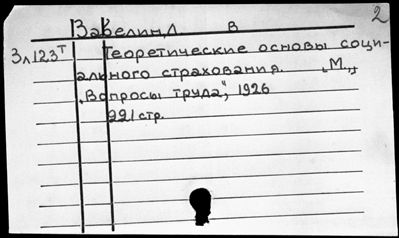 2
Забелин,Л. В
Зл123т Теоретические основы соци-
ального страхования. "М.,
"Вопросы труда", 1926
221 стр.